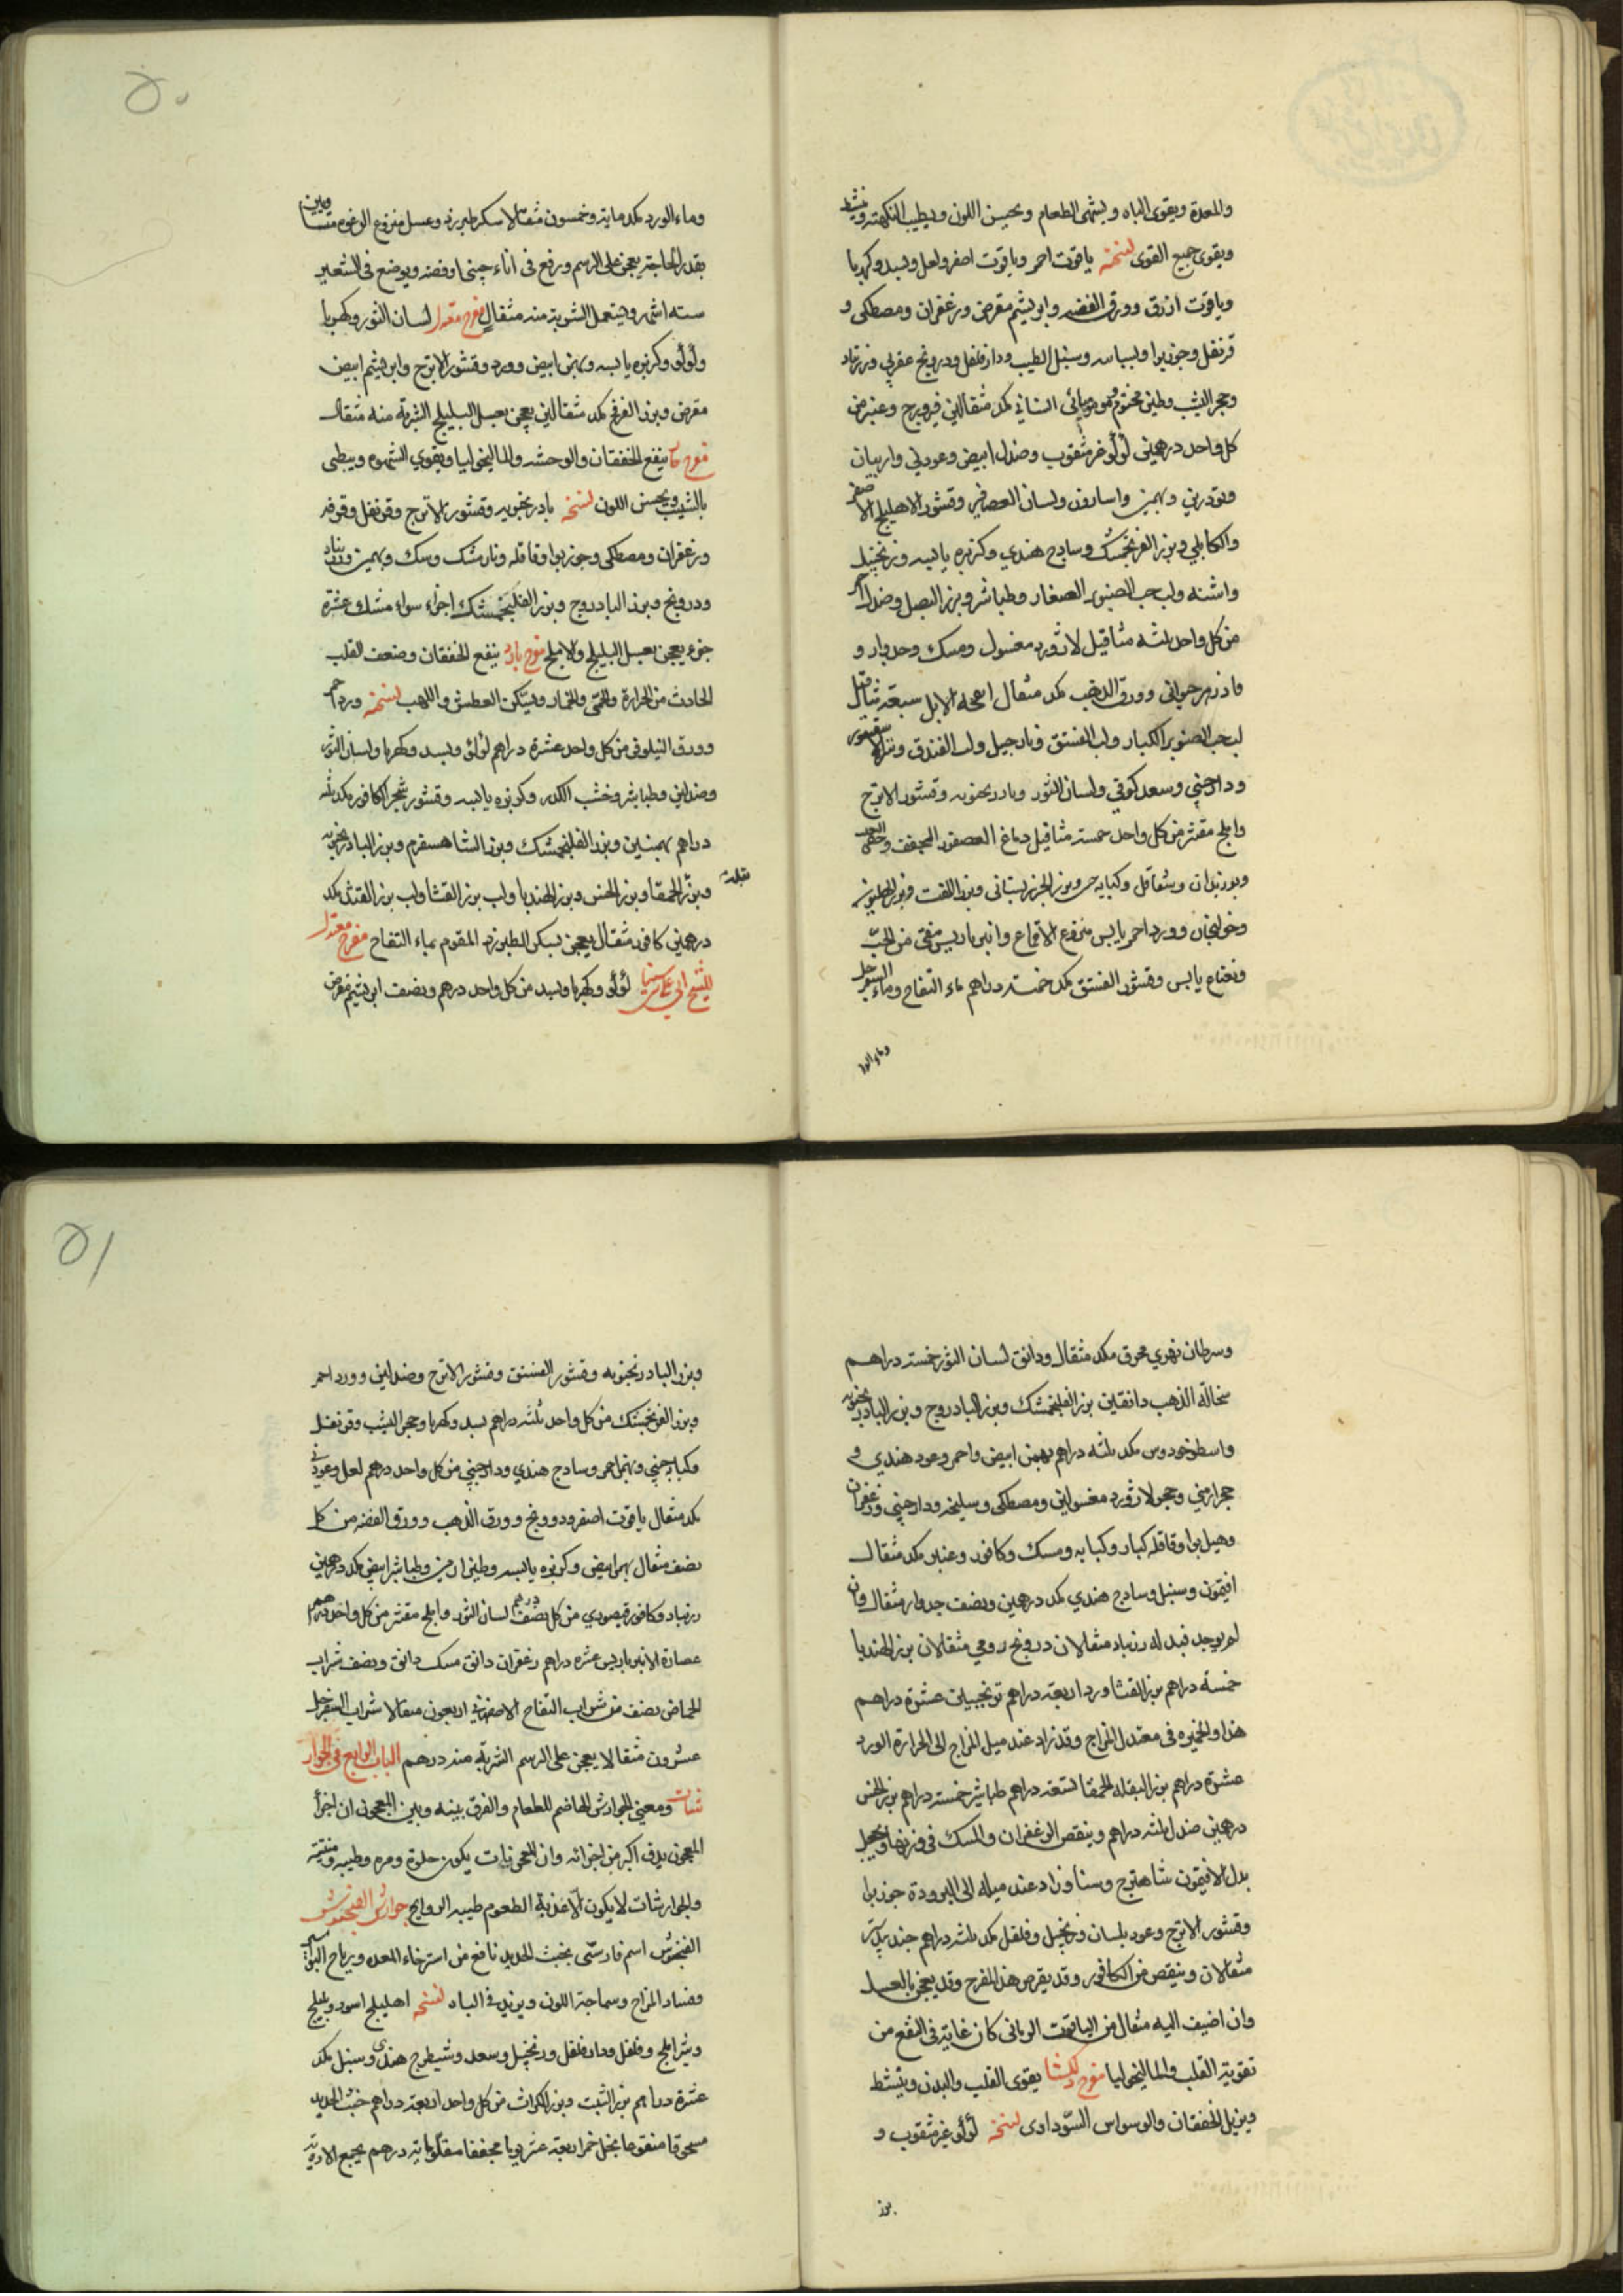 والمعدة ويقوى الباه ويشهى الطعام ويحسن اللون ويطيب النكهته وينشط
ويقوى جميع القوى نسخته ياقوت احمر وياقوت اصفر ولعل وبسد وكهربا
وياقوت ازرق وورق الفضه وابريشم مقرض وزعفران ومصطكى و
قرنفل وجوزبوا وبسباسه وسنبل الطيب ودارفلفل ودرونج عقربي وزرنباد
وحجر اليشب وطين مختوم وموميائى الشانى مكد مثقالين فيروزج وعنبر من
كل واحد درهمين لؤلؤ غير مثقوب وصندل ابيض وعود نى واربيان
وتودرين وبهمنين واسارون ولسان العصافير وقشور الاهليلج الاصفر
والكابلي وبزر الفرنجمشك وسادج هندي وكزبره يابسه وزنجبيل
واشنه ولب حب الصنوبر الصغار وطباشير وبزر البصل وصندل احمر
من كل واحد ثلثه مثاقيل لاژورد مغسول ومسك وجدوار و
فادزهر حيوانى وورق الذهب مكد مثقال انفحه الابل سبعة مثاقيل
لب حب الصنوبر الكبار ولب الفستق ونارجيل ولب الفندق وسقنقور
ودارچيني وسعد كوفي ولسان الثور وبادرنجبويه وقشور الاترج
واملج مقشر من كل واحد خمسة مثاقيل دماغ العصفور المجفف
وبوزيدان وشقاقل وكبابه وبزر الجزر بستانى وبزر اللفت وبزر الهليون
وخولنجان وورد احمر يابس منزوع الاقماع وانبرباريس منقى من الحب
ونعناع يابس وقشور الفستق مكد خمسة دراهم ماء التفاح وماء السفرجل
وماء الورد
وماء الورد مكد مايه وخمسون مثقالا سكر طبرزد وعسل منزوع الرغوه متساويين
بقدر الحاجة يعجن على الرسم ورفع فى اناء چينى او فضه ويوضع فى الشعير
سته اشهر ويستعمل الشربة منه مثقال مفرح معتدل لسان الثور وكهربا
ولؤلؤ وكزبره يابسه وبهمن ابيض وورد وقشور الاترج وابريشم ابيض
مقرض وبزر الفرفخ مكد مثقالين يعجن بعسل البليلج الشربة منه مثقال
مفرح ينفع للخفقان والوحشه والماليخوليا ويقوي الشهوه ويبطى
بالشيب ويحسن اللون نسخته بادرنجبويه وقشور الاترج وقرنفل وقرفه
وزعفران ومصطكى وجوزبوا وقاقله ونارمشك وسك وبهمنين وزرنباد
ودرونج وبزر البادروج وبزر الفلنجمشك اجزاء سواء مشك عشرة
جزء يعجن بعسل البليلج والاملج مفرح بارد ينفع للخفقان وضعف القلب
الحادث من الحرارة والحمى والخمار ويسكن العطش واللهب نسخته ورد احمر
وورق النيلوفر من كل واحد عشرة دراهم لؤلؤ وبسد وكهربا ولسان الثور
وصندلين وطباشير وخشب الكدر وكزبره يابسه وقشور شجر الكافور مكد ثلثه
دراهم بهمنين وبزر الفلنجمشك وبزر الشاهسفرم وبزر البادرنجبويه
وبزر بقلة الحمقا وبزر الخس وبزر الهندبا ولب بزر القثا ولب بزر القثد مكد
درهمين كافور مثقال يعجن بسكر الطبرزد المقوم بماء التفاح مفرح معتدل
للشيخ ابي على سينا لؤلؤ وكهربا وبسد من كل واحد درهم ونصف ابريشم مقرض
وسرطان نهري محرق مكد مثقال ودانق لسان الثور خمسة دراهم
سحالة الذهب دانقين بزر الفلنجمشك وبزر البادروج وبزر البادرنجبويه
واسطوخودوس مكد ثلثه دراهم بهمن ابيض واحمر وعود هندي و
حجر ارمني وحجر لاژورد مغسولين ومصطكى وسليخه ودارچيني وزعفران
وهيل بوا وقاقله كبار وكبابه ومسك وكافور وعنبر مكد مثقال
افتيمون وسنبل وسادج هندي مكد درهمين ونصف جدوار مثقال وان
لم يوجد فبدله زرنباد مثقالان درونج رومي مثقالان بزر الهندبا
خمسة دراهم بزر القثا وورد اربعة دراهم ترنجبين عشرة دراهم
هذا والخميره فى معتدل المزاج وقد زاد عند ميل المزاج الى الحرارة الورد
عشرة دراهم بزر البقله الحمقا تسعة دراهم طباشير خمسة دراهم بزر الخس
درهمين صندل ثلثه دراهم وينقص الزعفران والمسك فى وزنها ويجعل
بدل الافتيمون شاهترج وسنا وزاد عند ميله الى البرودة جوزبوا
وقشور الاترج وعود بلسان وزنجبيل وفلفل مكد ثلثه دراهم جندبيدستر
مثقالان وينقص من الكافور وقد يقرص هذا المفرح وقد يعجن بالعسل
وان اضيف اليه مثقال من الياقوت الرمانى كان غاية فى النفع من
تقوية القلب والماليخوليا مفرح دلكشا يقوى القلب والبدن وينشط
ويزيل الخفقان والوسواس السوداوى نسخته لؤلؤ غير مثقوب و
بزر
وبزر البادرنجبويه وقشور الفستق وقشور الاترج وصندلين وورد احمر
وبزر الفرنجمشك من كل واحد ثلثه دراهم بسد وكهربا وحجر اليشب وقرنفل
وكبابه چيني وبهمن احمر وسادج هندي ودارچيني من كل واحد درهم لعل وعود نى
مكد مثقال ياقوت اصفر ودرونج وورق الذهب وورق الفضه من كل
نصف مثقال بهمن ابيض وكزبره يابسه وطين ارمنى وطباشير ابيض مكد درهمين
زرنباد وكافور قيصوري من كل نصف درهم لسان الثور واملج مقشر من كل واحد درهم
عصارة الانبرباريس عشره دراهم زعفران دانق مسك دانق ونصف شراب
الحماض نصف من شراب التفاح الاصفهانى اربعون مثقالا شراب السفرجل
عشرون مثقالا يعجن على الرسم الشربة منه درهم الباب الرابع فى الجوار
شنات ومعنى الجوارش الهاضم للطعام والفرق بينه وبين المعجون ان اجزأ
المعجون يدق اكبر من اجزائه وان المعجونات يكون حلوة ومره وطيبه ومنتنه
والجوارشات لا يكون الا عذبة الطعوم طيبه الروايح جوارش الفنجنوش
الفنجنوش اسم فارسى بخبث الحديد نافع من استرخاء المعده ورياح البواسير
وفساد المزاج وسماجة اللون ويزيد فى الباه نسخته اهليلج اسود وبليلج
وشير املج وفلفل ودارفلفل وزنجبيل وسعد وشيطرج هندى وسنبل مكد
عشرة دراهم بزر الشبت وبزر الكراث من كل واحد اربعة دراهم خبث الحديد
مسحوقا منقوعا بخل خمر اربعة عشر يوما مجففا مقلوا مايه درهم يجمع الادوية